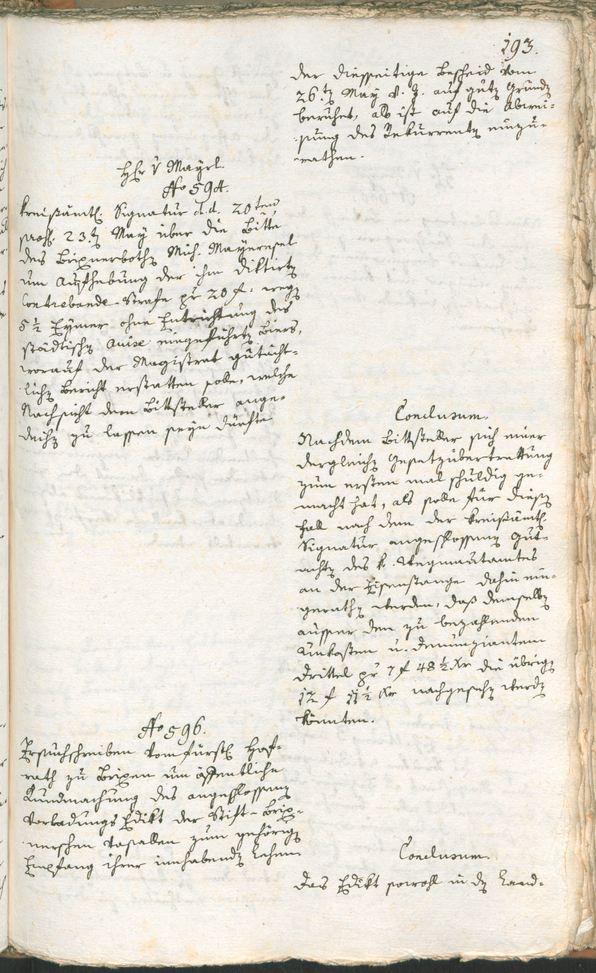 193.
der diesseitige Bescheid vom
26.t May v. J. auf gute Gründe
beruhet, als ist auf die Abwei-
sung des Rekurrenten einzu-
rathen.
Hr v Mayrl.
No 594.
Kreisämtl. Signatur d. d. 20ten
praes. 23.t May über die Bitte
des Brixnerboths Mich. Mayrensel
um Aufhebung der ihm diktirten
Contrebande-Strafe pr 20 f. wegen
5 ½ Eymer ohne Entrichtung des
städtischen Aufschl. eingeführten Biers,
worauf der Magistrat gutächt-
lichen Bericht erstatten solle, welche
Nachsicht dem Bittsteller ange-
deihen zu lassen seyn dürfte.
Conclusum.
Nachdem Bittsteller sich einer
dergleichen Gesetzübertrettung
zum ersten mal schuldig ge-
macht hat, als solle für diesen
fall nach dem der kreisämtl.
Signatur angeschlossenen Gut-
achten des k. Wegmautamtes
an der Eisenstange dahin ein-
gerathen werden, daß demselben
ausser den zu bezahlenden
Unkosten u. Denunzianten
Drittel pr 7 f 48 ½ Kr die übrigen
12 f 11 ½ Kr nachgesehen werden
könnten.
No 596.
Ersuchschreiben vom fürstl. Hof-
rath zu Brixen um öffentliche
Kundmachung des angeschlossenen
Vorladungs Edikt der Stift-Brix-
nerischen Vasallen zum gehörigen
Empfang ihrer innhabenden Lehen
Conclusum.
Das Edikt sowohl in den Land-